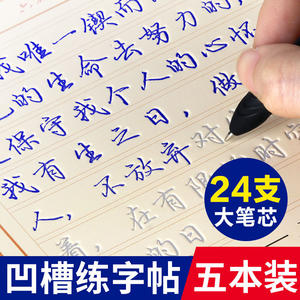 我唯一锲而
的生命去努力的,
保守我个人的心怀
我有生之日,做
人,不放弃对
着,在有限的时
的日
24支
大笔芯
凹槽练字帖
五本装